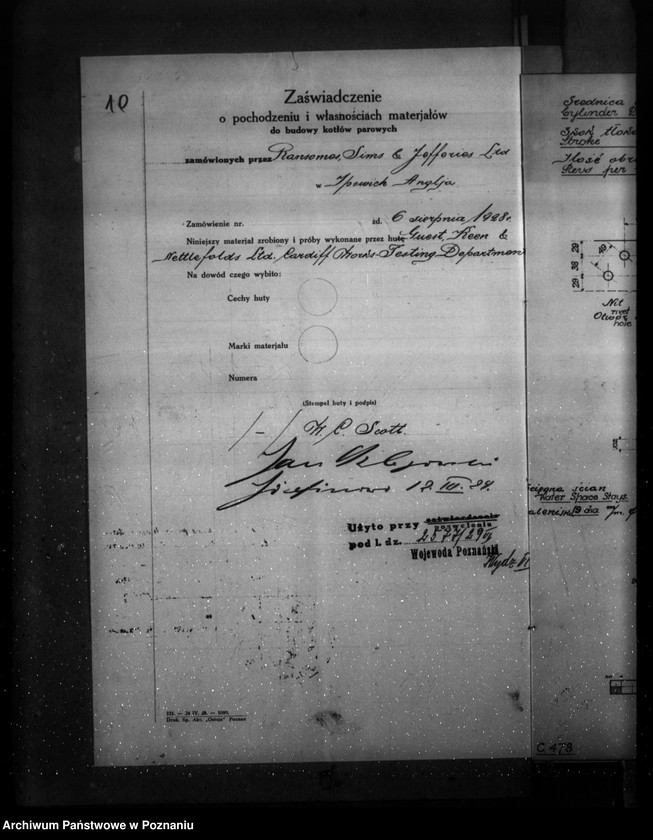 10
Zaświadczenie
o pochodzeniu i własnościach materjałów
do budowy kotłów parowych
zamówionych przez Ransomes, Sims & Jefferies Ltd
w Ipswich Anglja
Zamówienie nr. zd. 6 sierpnia 1928 r.
Niniejszy materjał zrobiony i próby wykonane przez hutę Guest, Keen &
Nettlefolds Ltd. Cardiff Works-Testing Department
Na dowód czego wybito:
Cechy huty
Marki materjału
Numera
(Stempel huty i podpis)
/-/ W. C. Scott
Jan
Użyto przy zatwierdzenia
zezwolenia
pod l. dz.
Wojewoda Poznański
Wydz. VI
Druk. Sp. Akc. „Ostoja” Poznań
Średnica
Cylinder
Skok tłoka
Stroke
Ilość obr
Revs per
29
38
29
Nit
rivet
Otwór
hole
ścian
Water Space Stays
19 dia
C 478
Archiwum Państwowe w Poznaniu